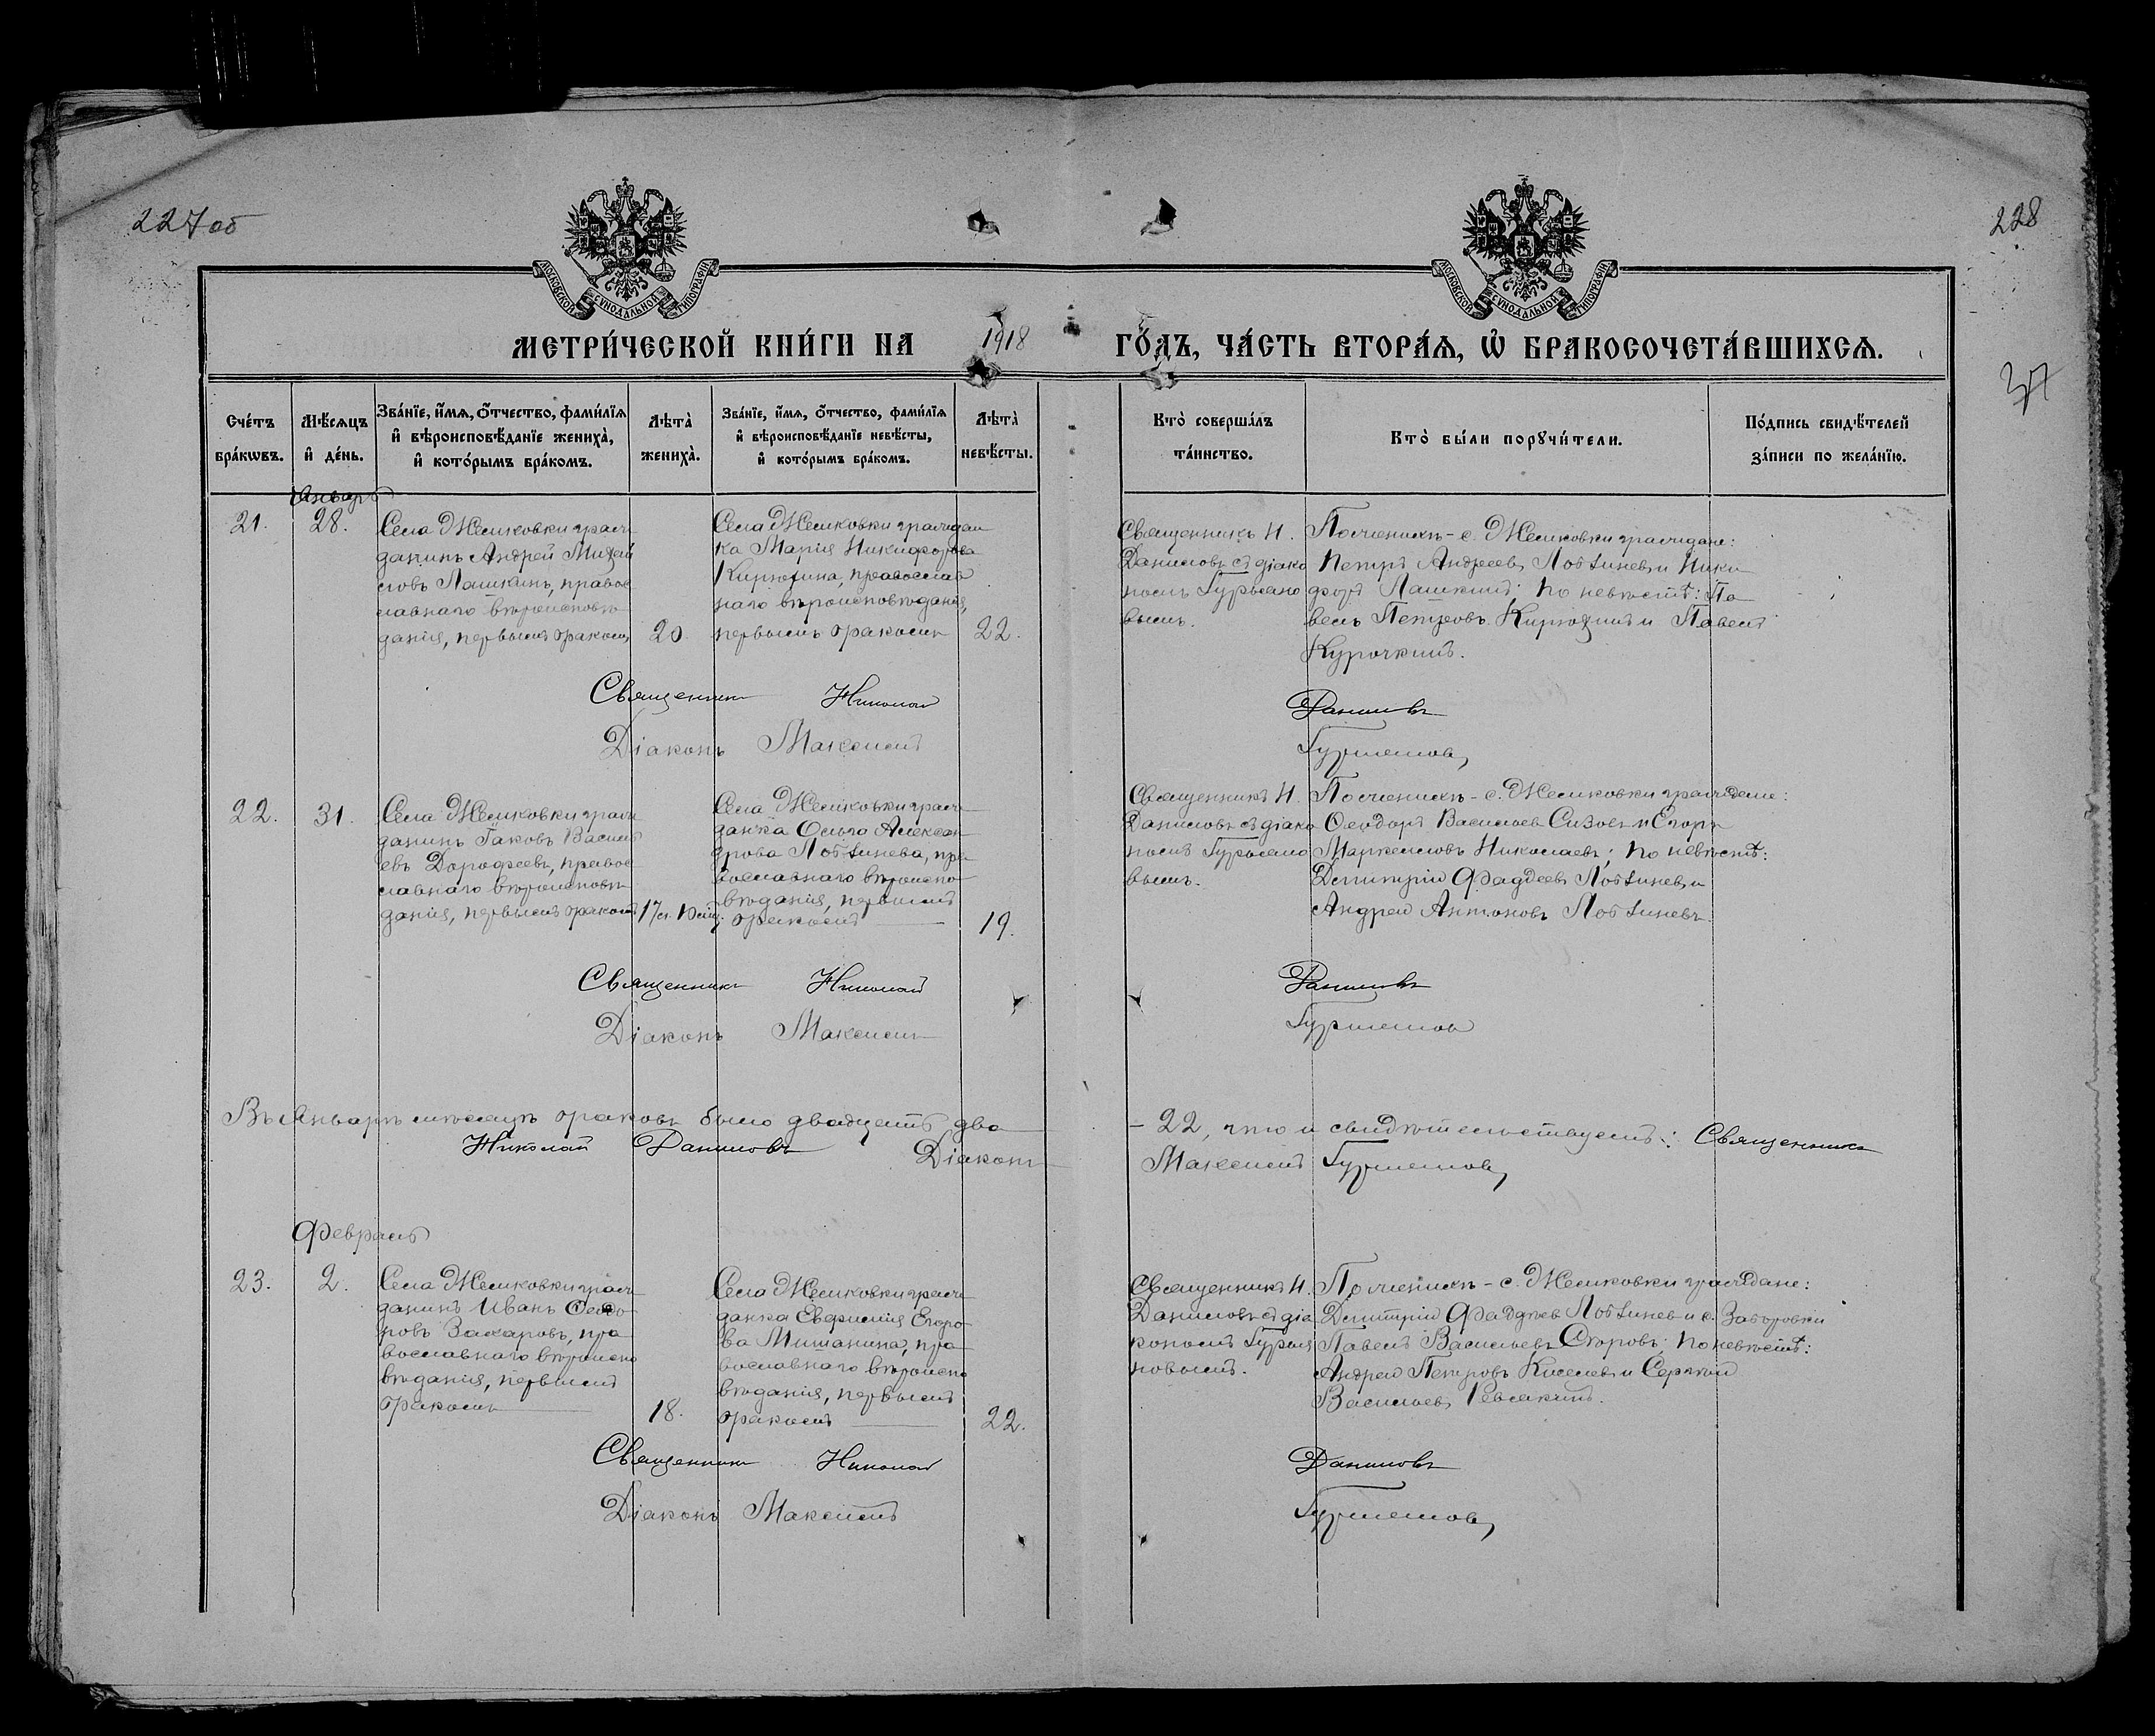 227 об
228
37
МОСКОВСКОЙ СѴНОДАЛЬНОЙ ТИПОГРАФІИ
МОСКОВСКОЙ СѴНОДАЛЬНОЙ ТИПОГРАФІИ
МЕТРИ́ЧЕСКОЙ КНИ́ГИ НА 1918 ГО́ДЪ, ЧА́СТЬ ВТОРА́Ѧ, Ѽ БРАКОСОЧЕТА́ВШИХСѦ.
Сче́тъ
бра́кѡвъ.
Мѣ́сѧцъ
и҆ де́нь.
Зва́нїе, и҆́мѧ, ѻ҆́тчество, фами́лїѧ
и҆ вѣроисповѣ́данїе жениха̀,
и҆ кото́рымъ бра́комъ.
Лѣ́та̀
жениха̀.
Зва́нїе, и҆́мѧ, ѻ҆́тчество, фами́лїѧ
и҆ вѣроисповѣ́данїе невѣ́сты,
и҆ кото́рымъ бра́комъ.
Лѣ́та̀
невѣ́сты.
Кто̀ соверша́лъ
та́инство.
Кто̀ бы́ли порꙋчи́тели.
По́дпись свидѣ́телей
за́писи по жела́нїю.
Январь
21.
28.
Села Жемковки граж
данинъ Андрей Михай
ловъ Лашкинъ, правос
лавнаго вѣроисповѣ
данія, первымъ бракомъ
20.
Села Жемковки граждан
ка Марія Никифорова
Кирюхина, православ
наго вѣроисповѣданія,
первымъ бракомъ
22.
Священникъ Н.
Даниловъ съ діако
номъ Гурьяно
вымъ.
По женихѣ - с. Жемковки граждане:
Петръ Андреевъ Лобзиневъ и Ники
форъ Лашкинъ; по невѣстѣ: Па
велъ Петровъ Кирюхинъ и Павелъ
Курочкинъ.
Священникъ Николай Даниловъ
Діаконъ Максимъ Гурьяновъ
22.
31.
Села Жемковки граж
данинъ Іаковъ Василь
евъ Дорофеевъ, правос
лавнаго вѣроисповѣ
данія, первымъ бракомъ
Села Жемковки граж
данка Ольга Алексан
дрова Лобзинева, пра
вославнаго вѣроиспо
вѣданія, первымъ
бракомъ
19.
Священникъ Н.
Даниловъ съ діако
номъ Гурьяно
вымъ.
По женихѣ - с. Жемковки граждане:
Ѳеодоръ Васильевъ Сизовъ и Егоръ
Маркелловъ Николаевъ; по невѣстѣ:
Димитрій Фаддеевъ Лобзиневъ и
Андрей Антоновъ Лобзиневъ.
Священникъ Николай Даниловъ
Діаконъ Максимъ Гурьяновъ
Въ Январѣ мѣсяцѣ браковъ было двадцать два - 22, что и свидѣтельствуемъ: Священникъ
Николай Даниловъ Діаконъ Максимъ Гурьяновъ
Февраль
23.
2.
Села Жемковки граж
данинъ Иванъ Ѳеодо
ровъ Захаровъ, пра
вославнаго вѣроиспо
вѣданія, первымъ
бракомъ
18.
Села Жемковки граж
данка Евфимія Егоро
ва Мишанина, пра
вославнаго вѣроиспо
вѣданія, первымъ
бракомъ
22.
Священникъ Н.
Даниловъ съ діа
кономъ Гурья
новымъ.
По женихѣ - с. Жемковки граждане:
Димитрій Фаддѣевъ Лобзиневъ и с. Заборовки
Павелъ Васильевъ Егоровъ; по невѣстѣ:
Андрей Петровъ Киселевъ и Сергѣй
Васильевъ Ревякинъ.
Священникъ Николай Даниловъ
Діаконъ Максимъ Гурьяновъ